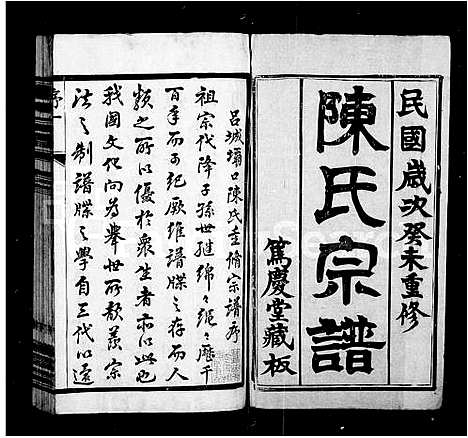 民國歲次癸未重修
陳氏宗譜
篤慶堂藏板
呂城壩口陳氏重修宗譜序
祖宗代降子孫世継綿々繩々歷千
百年而可紀厥維譜牒之存而人
類之所以優於衆生者亦以此也
我國文化向為舉世所歆羨宗
法之制譜牒之學自三代以還
序一